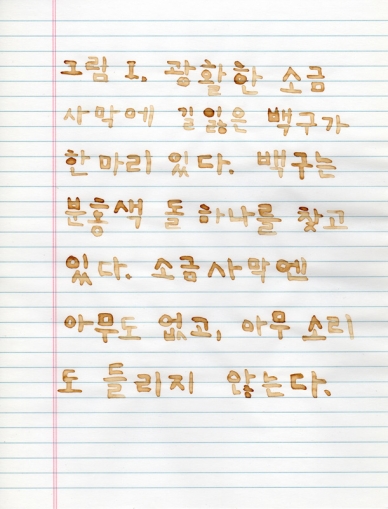 그림 1. 광활한 소금
사막에 길잃은 백구가
한마리 있다. 백구는
분홍색 돌 하나를 찾고
있다. 소금사막엔
아무도 없고, 아무 소리
도 들리지 않는다.